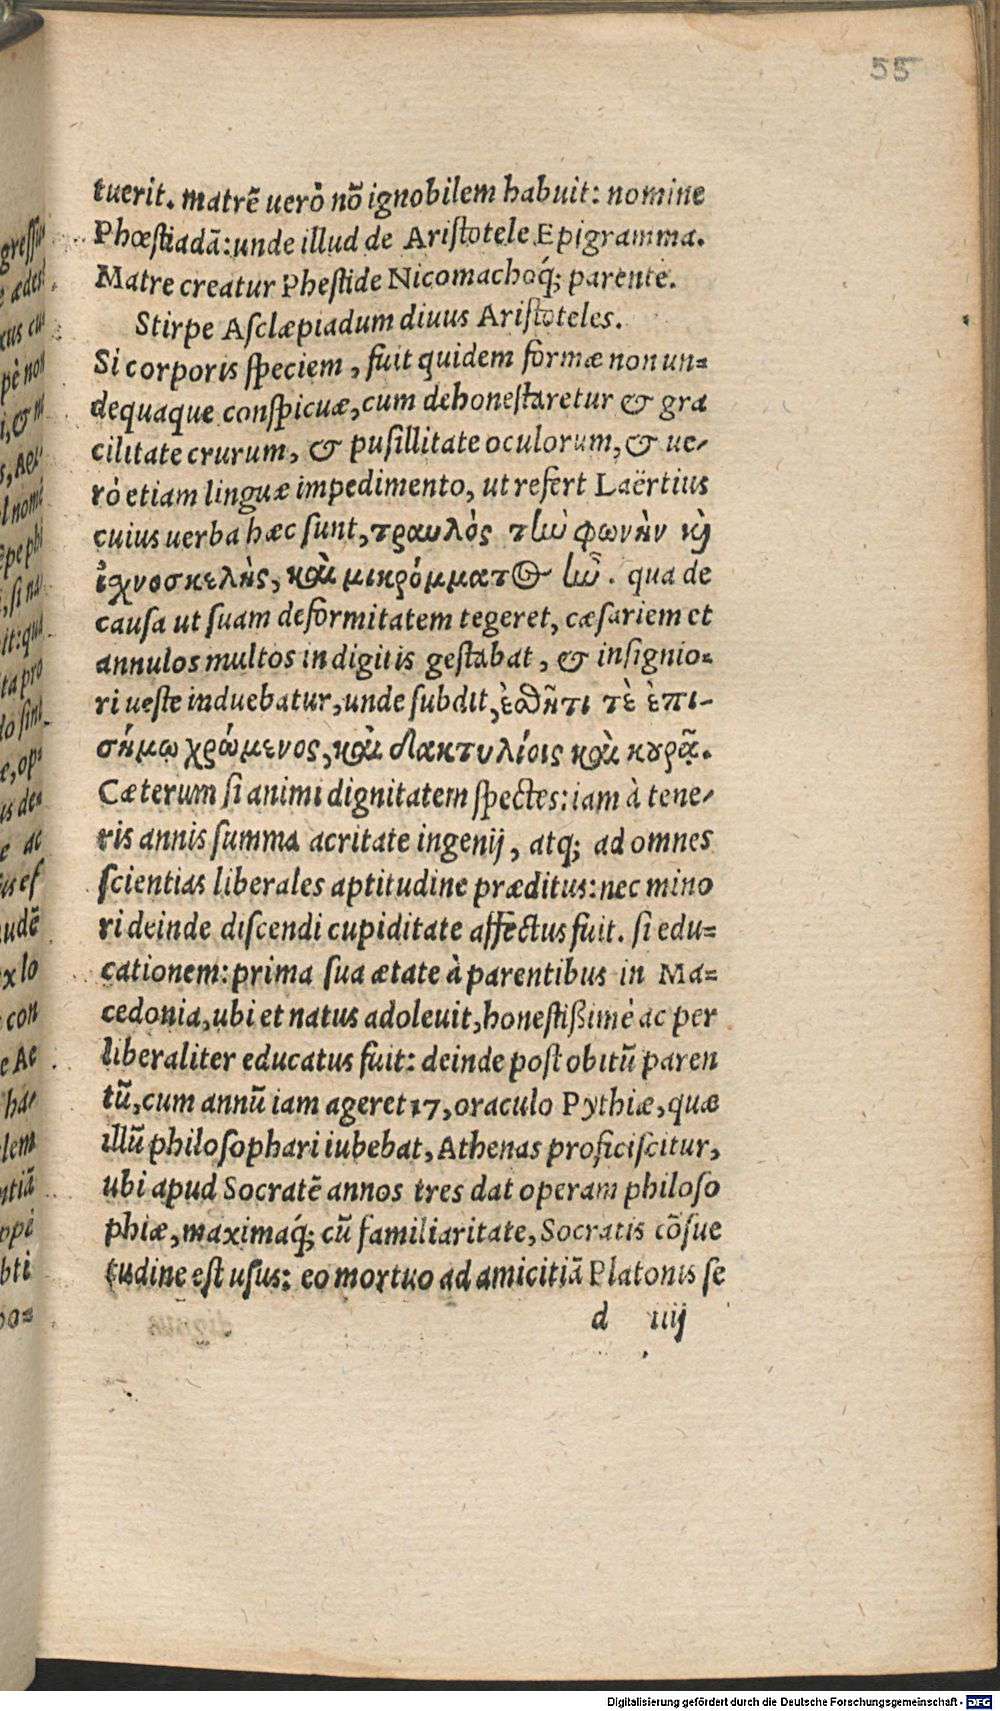 55
tuerit. matrē uerò nō ignobilem habuit: nomine
Phœstiadā: unde illud de Aristotele Epigramma.
Matre creatur Phestide Nicomachoq́; parente.
Stirpe Asclæpiadum diuus Aristoteles.
Si corporis speciem, fuit quidem formæ non un=
dequaque conspicuæ, cum dehonestaretur & gra
cilitate crurum, & pusillitate oculorum, & ue-
rò etiam linguæ impedimento, ut refert Laërtius
cuius uerba hæc sunt, τραυλὸς τὼ φωνὴν κὶ
ἰχνοσκελὴς, καὶ μικρόμματος ὦ. qua de
causa ut suam deformitatem tegeret, cæsariem et
annulos multos in digitis gestabat, & insignio=
ri ueste induebatur, unde subdit, ἐσθῆτι τὲ ἐπι-
σήμῳ χρώμενος, καὶ δακτυλίοις καὶ κουρᾷ.
Cæterum si animi dignitatem spectes: iam à tene-
ris annis summa acritate ingenij, atq; ad omnes
scientias liberales aptitudine præditus: nec mino
ri deinde discendi cupiditate affectus fuit. si edu=
cationem: prima sua ætate à parentibus in Ma=
cedonia, ubi et natus adoleuit, honestißimè ac per
liberaliter educatus fuit: deinde post obitū paren
tū, cum annū iam ageret 17, oraculo Pythiæ, quæ
illū philosophari iubebat, Athenas proficiscitur,
ubi apud Socratē annos tres dat operam philoso
phiæ, maximaq́; cū familiaritate, Socratis cōsue
tudine est usus: eo mortuo ad amicitiā Platonis se
d iiij
Digitalisierung gefördert durch die Deutsche Forschungsgemeinschaft - DFG